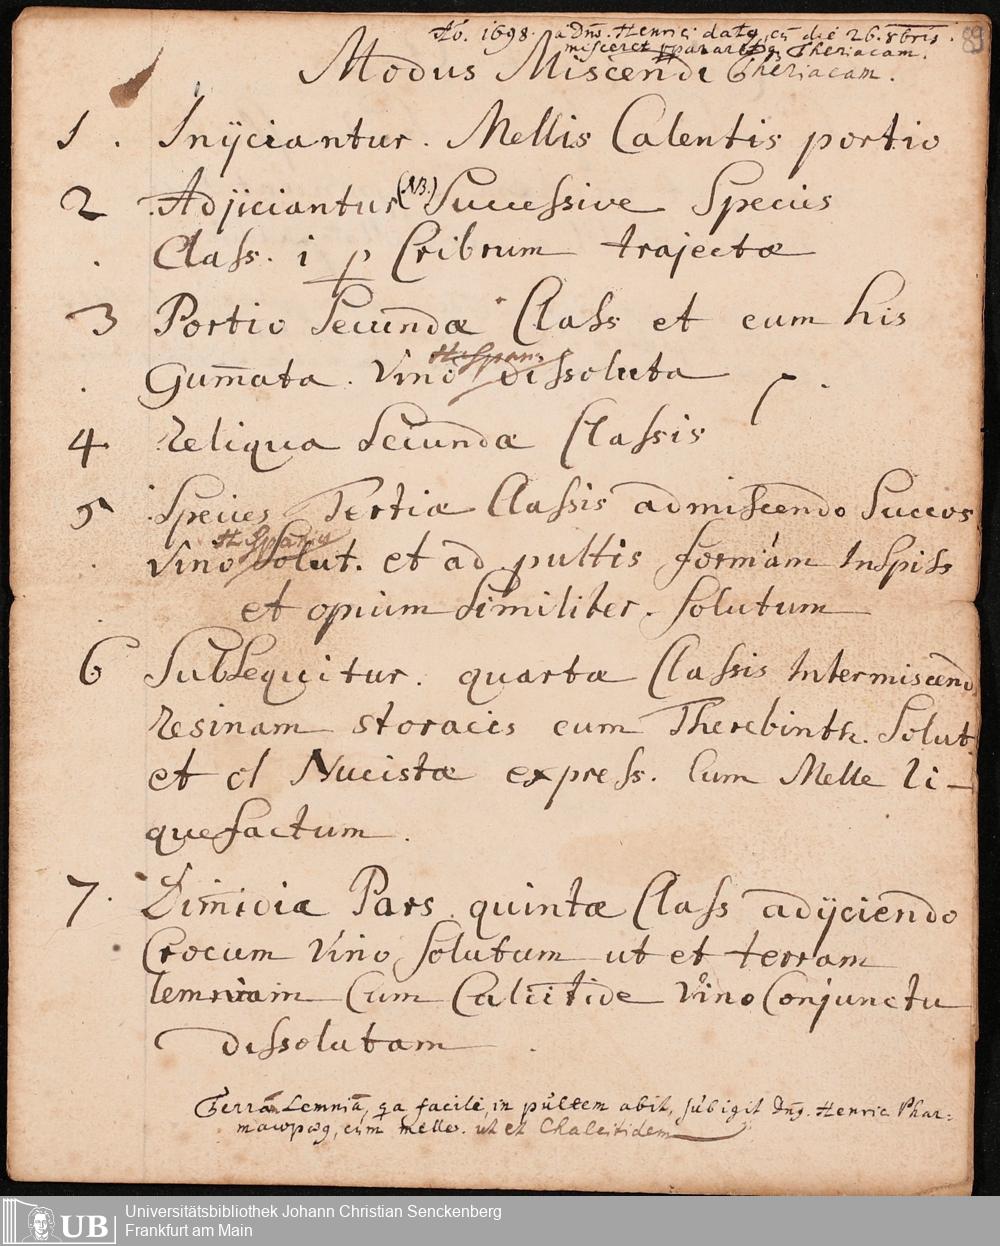 Ao. 1698. a Dno. Henrici datq, cū die 26. 8bris.
misceret Theriacam.
89
Modus Miscendi Theriacam.
1. Inÿciantur. Mellis Calentis portio
2 Adjiciantur (NB.) Successive Species
Class. i p Cribrum trajectæ
3 Portio Secundæ Class et cum his
Gum̄ata. Vino Hispan: dissoluta
4 Reliqua Secundæ Classis
5 Species Tertiæ Classis admiscendo Succos
Vino Solut. et ad pultis formam Inspiss
et opium Similiter. Solutum
6 Subsequitur. quartæ Classis Intermiscend
resinam storacis cum Therebinth. Solut.
et ol Nucistæ express. Cum Melle li-
quefactum.
7. Dim̄idiæ Pars. quintæ Class adÿciendo
Crocum Vino Solutum ut et terram
lemniam Cum Calcitide Vino Conjunctu
dissolutam.
Terrām Lemniā, qa facile, in pultem abit, subigit Dn9. Henric Phar=
macop9, cum melle. ut et Chalcitidem
UB Universitätsbibliothek Johann Christian Senckenberg
Frankfurt am Main